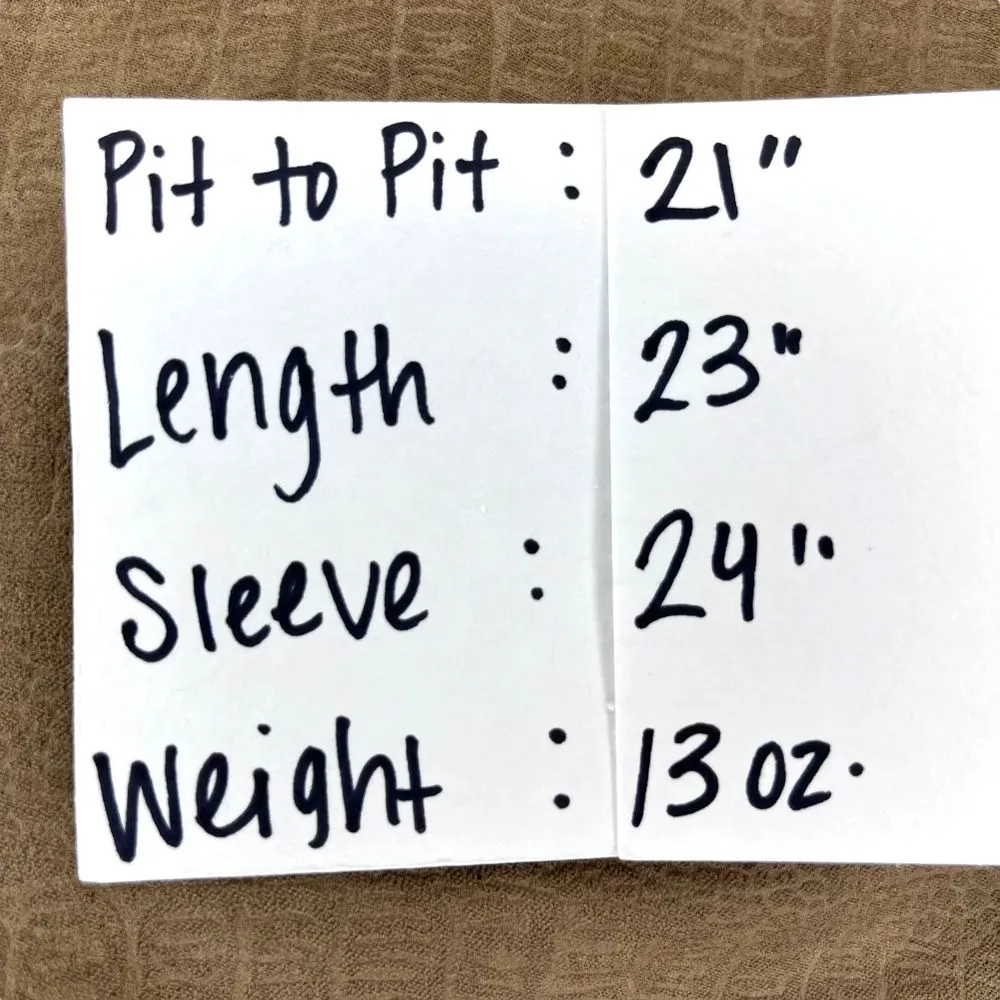 Pit to Pit : 21"
Length : 23"
Sleeve : 24"
Weight : 13 oz.